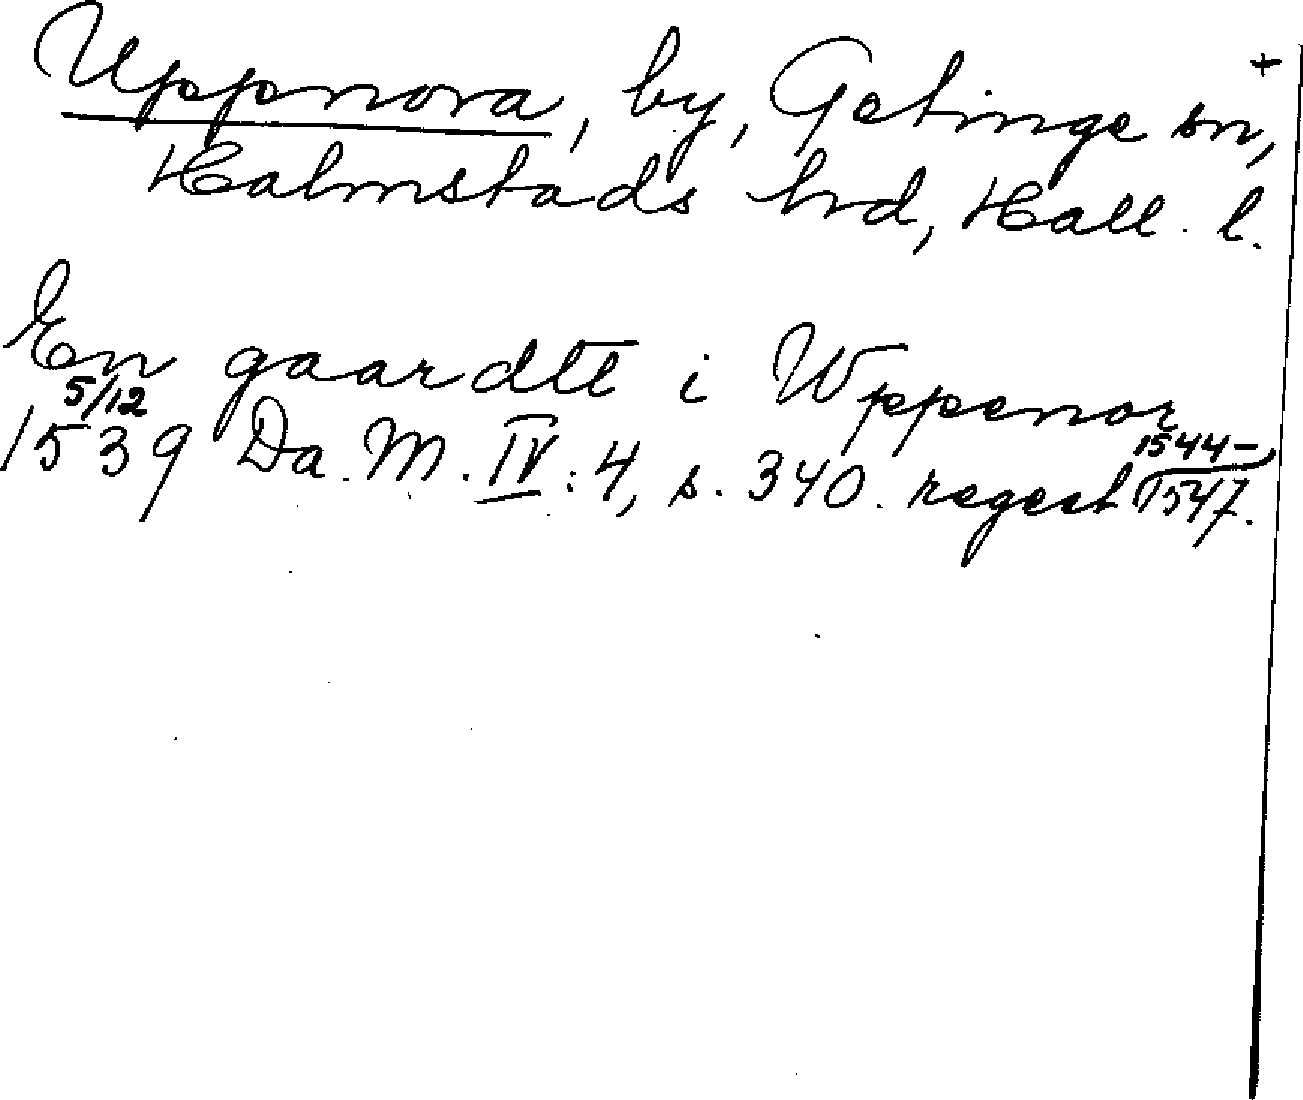 +
Uppnora, by, Getinge sn,
Halmstads hrd, Hall. l.
En gaardtt i Wppenor
5/12 1539 Da. M. IV: 4, s. 340. regest 1544-1547.